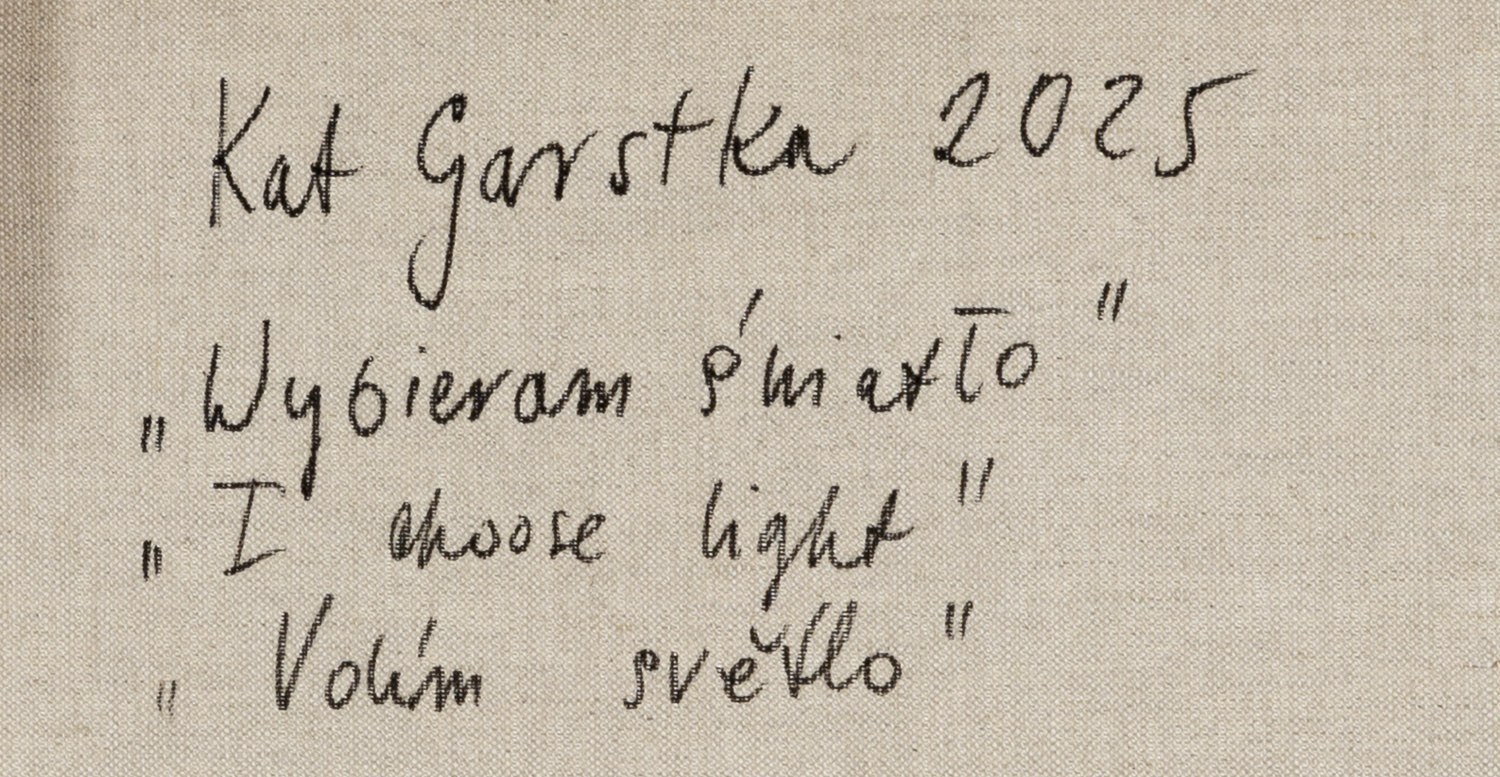 Kat Garstka 2025
„Wybieram światło"
„I choose light"
„Volím světlo"